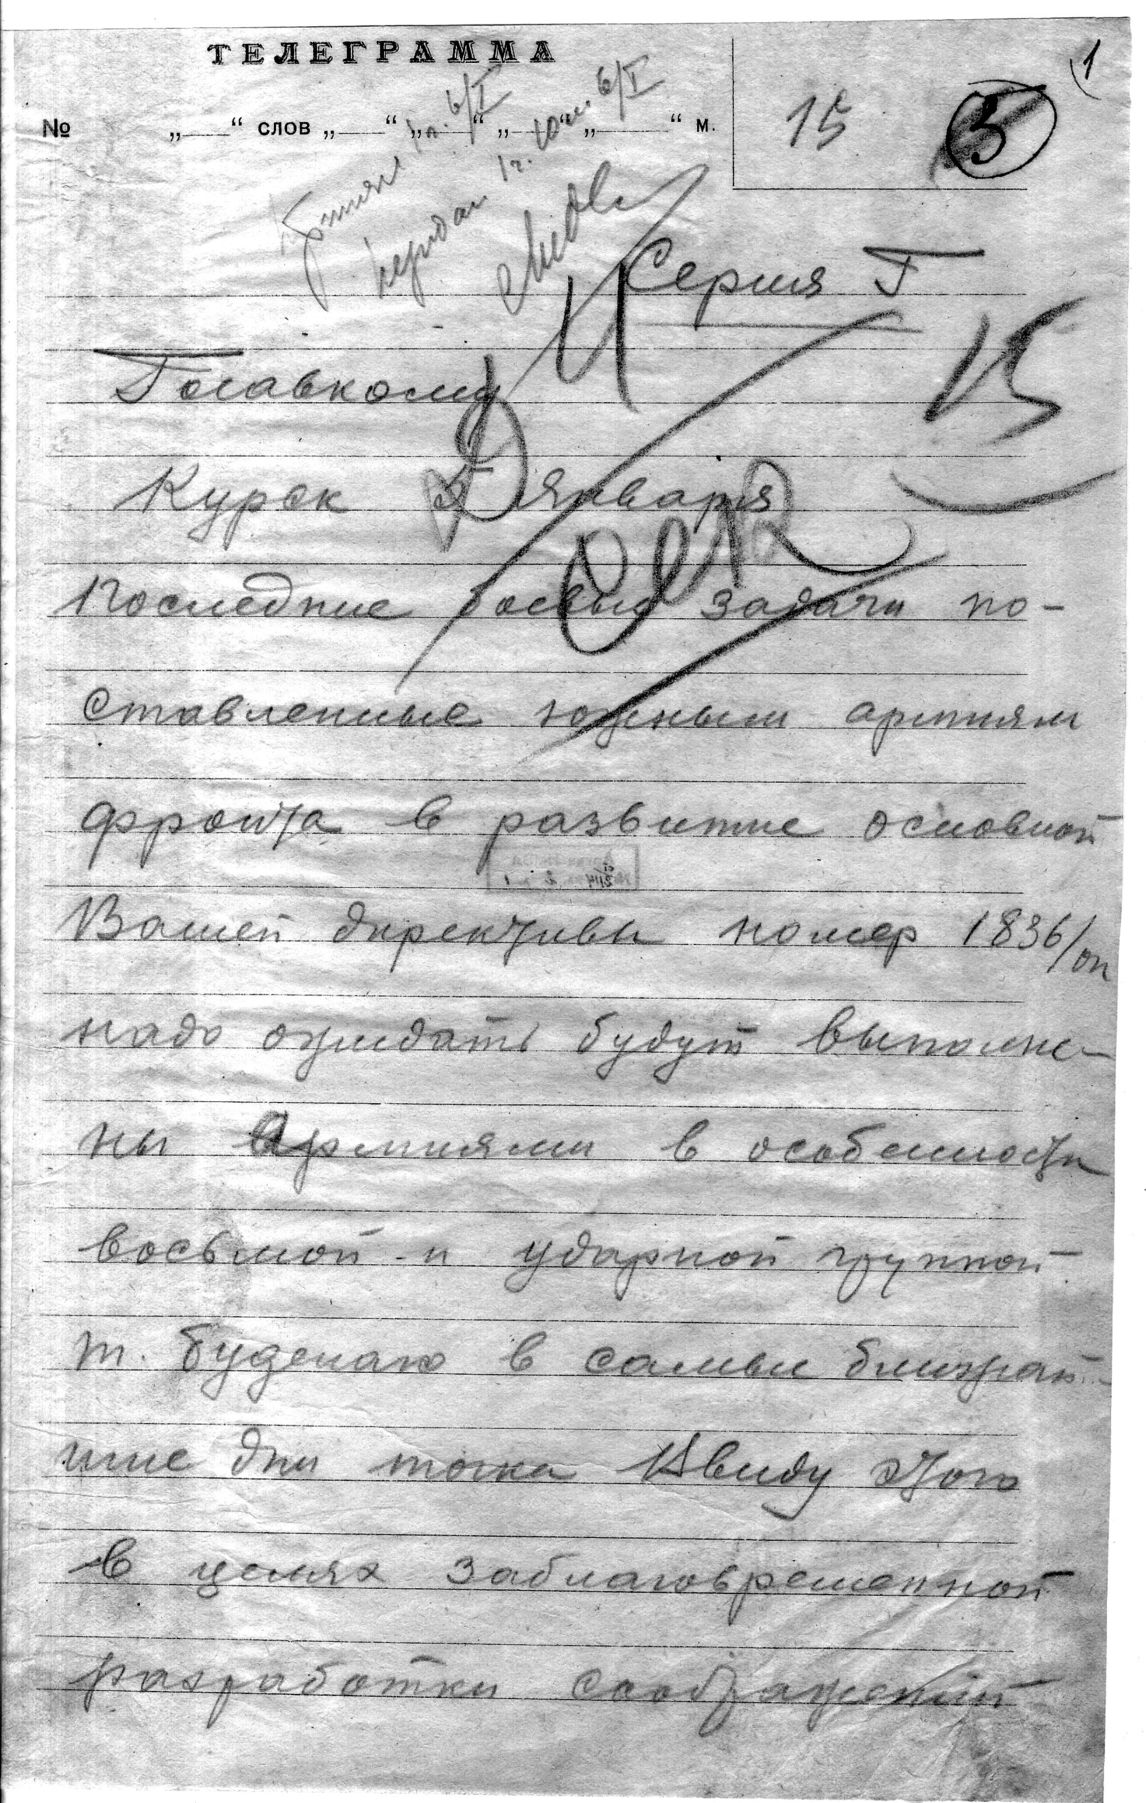 1
ТЕЛЕГРАММА
№ „ “ слов „ “ „ “ „ “ „ “ м.
15 3
Принял 6/I
передал 1ч. 10м. 6/I
Серия Г
15
Главкому
Курск 5 Января
Последние боевые задачи по-
ставленные южным армиям
фронта в развитие основной
Вашей директивы номер 1836/оп
надо ожидать будут выполне-
ны Армиями в особенности
восьмой и ударной группой
т. Буденаго в самые ближай-
шие дни точка Ввиду этого
в целях заблаговременной
разработки соображений